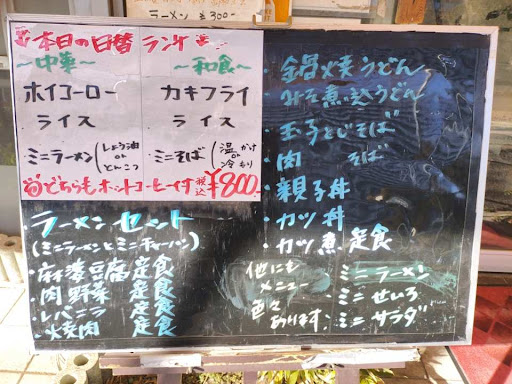 ラーメン ¥300-
本日の日替ランチ
〜中華〜
ホイコーロー
ライス
ミニラーメン(しょう油 or とんこつ)
〜和食〜
カキフライ
ライス
ミニそば(温かけ or 冷もり)
どちらもホットコーヒー付 税込 ¥800-
ラーメンセット
(ミニラーメンとミニチャーハン)
・麻婆豆腐定食
・肉野菜 定食
・レバニラ 定食
・焼肉 定食
・鍋焼うどん
・みそ煮込うどん
・玉子とじそば
・肉 そば
・親子丼
・カツ丼
・カツ煮定食
他にも
メニュー
色々
あります。
・ミニラーメン
・ミニせいろ
・ミニサラダ